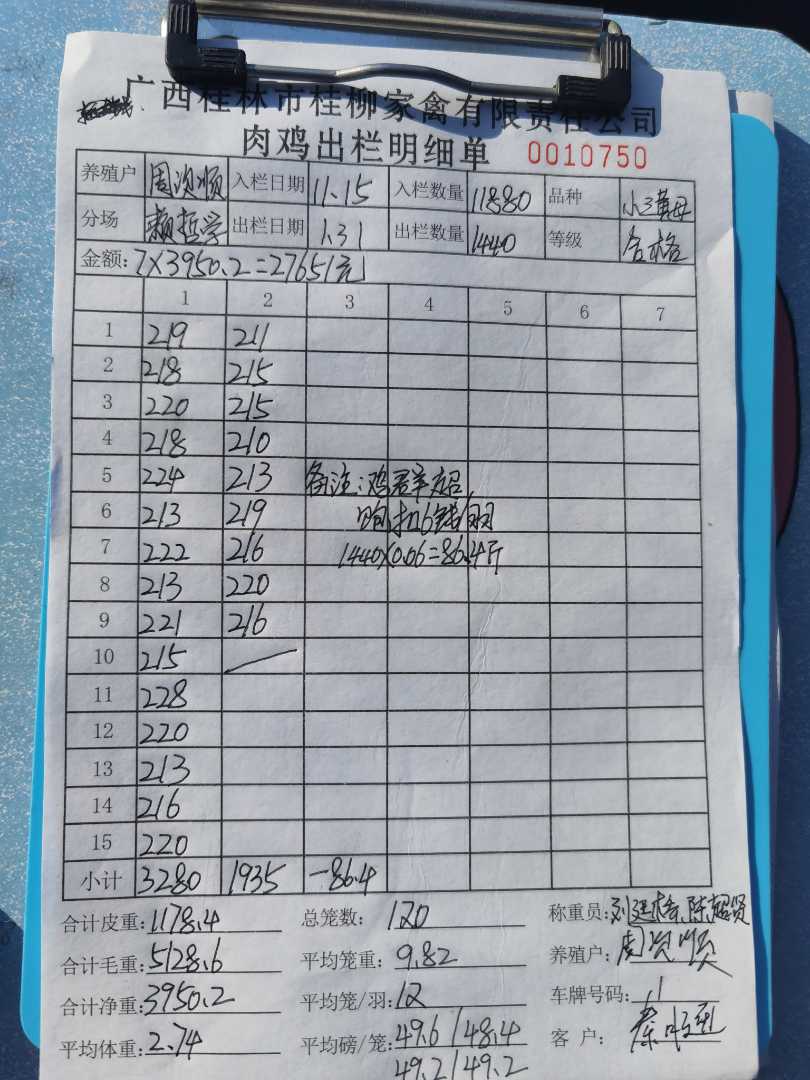 广西桂林市桂柳家禽有限责任公司
肉鸡出栏明细单 0010750
养殖户 周次顺 入栏日期 11.15 入栏数量 11880 品种 小三黄母
分场 赖哲学 出栏日期 1.31 出栏数量 1440 等级 合格
金额: 7×3950.2=27651元
1 2 3 4 5 6 7
1 219 211
2 218 215
3 220 215
4 218 210
5 224 213 备注:鸡群超
6 213 219 扣6钱/羽
7 222 216 1440×0.06=86.4斤
8 213 220
9 221 216
10 215
11 228
12 220
13 213
14 216
15 220
小计 3280 1935 -86.4
合计皮重: 1178.4 总笼数: 120 称重员:
合计毛重: 5128.6 平均笼重: 9.82 养殖户: 周次顺
合计净重: 3950.2 平均笼/羽: 12 车牌号码:
平均体重: 2.74 平均磅/笼: 49.6/48.4 客户:
49.2/49.2